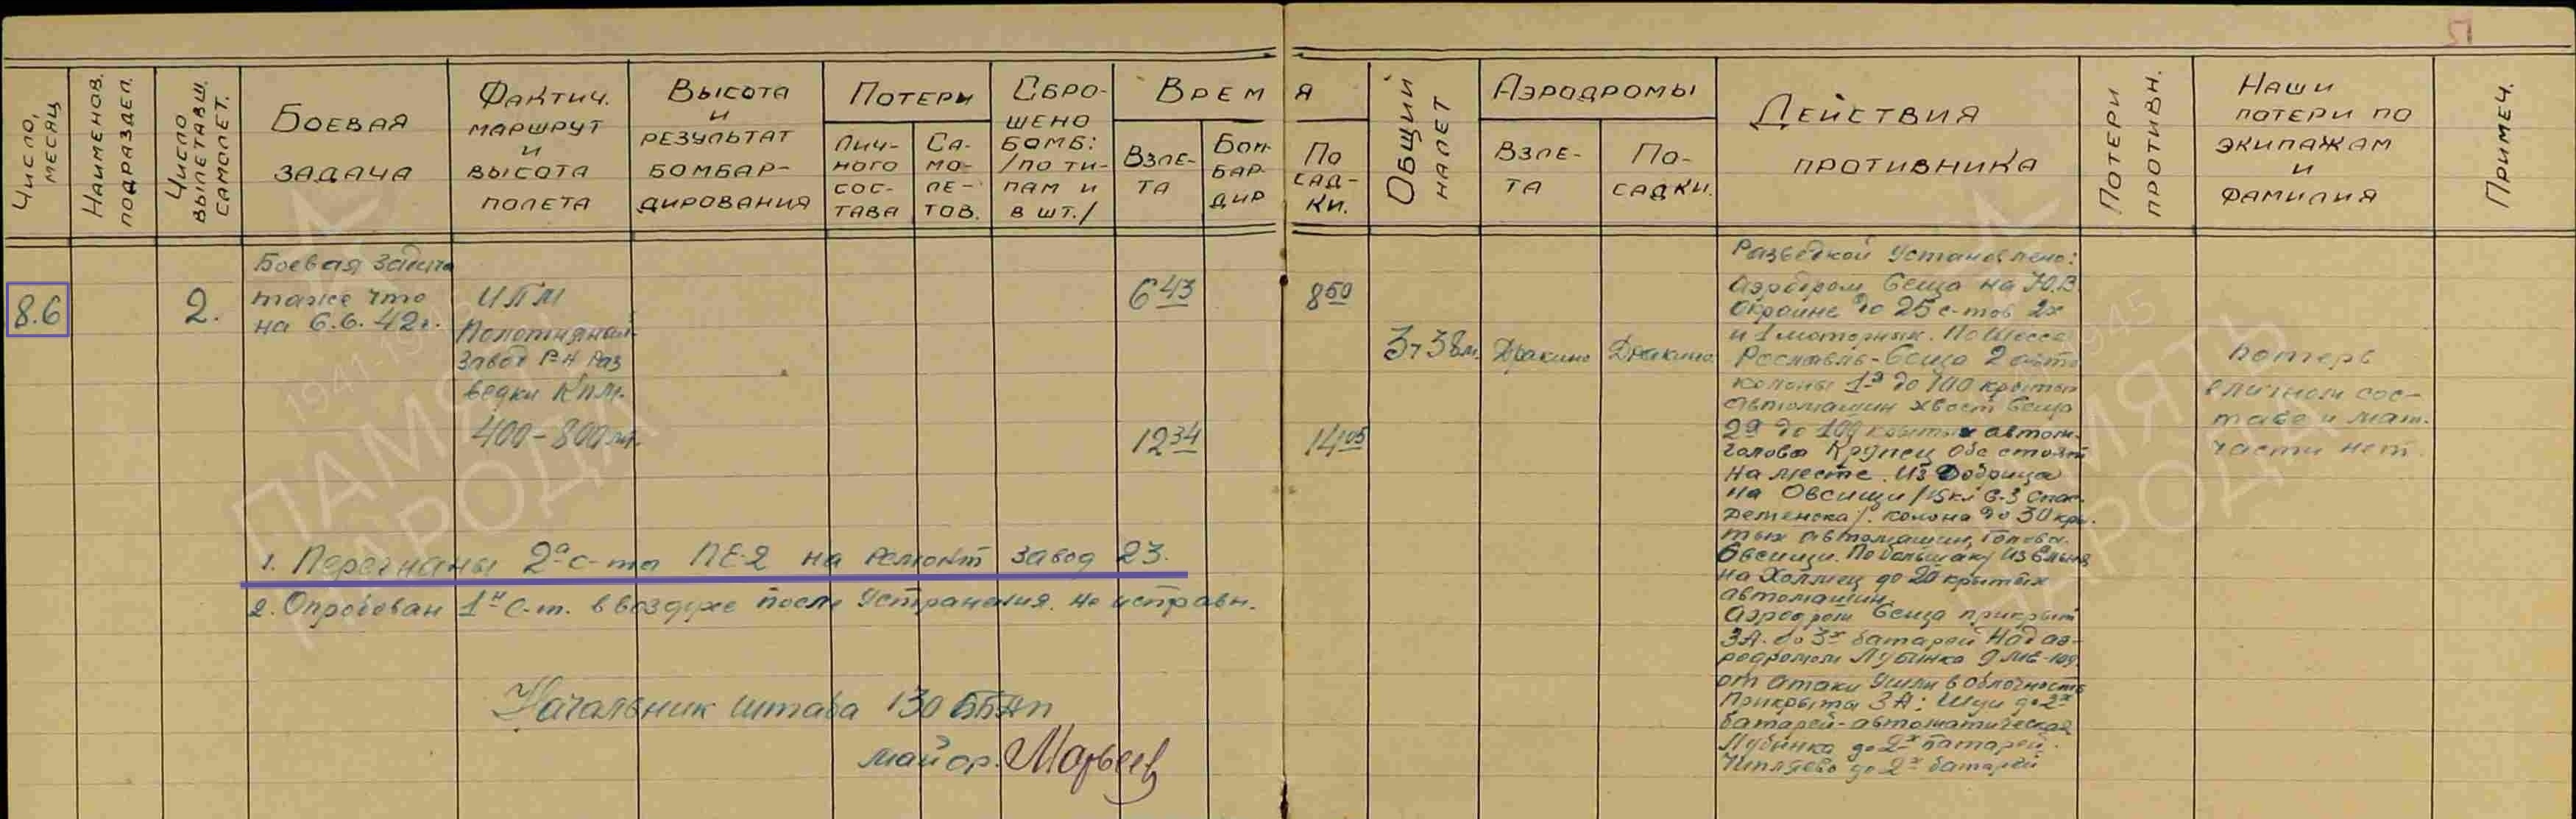 12
Число, месяц
Наименов. подраздел.
Число вылетавш. самолет.
Боевая
задача
Фактич.
маршрут
и
высота
полета
Высота
и
результат
бомбар-
дирования
Потери
Лич-
ного
сос-
тава
Са-
мо-
ле-
тов.
Сбро-
шено
бомб:
/по ти-
пам и
в шт./
Время
Взле-
та
Бом-
бар-
дир
По
сад-
ки.
Общий налет
Аэродромы
Взле-
та
По-
садки.
Действия
противника
Потери противн.
Наши
потери по
экипажам
и
фамилия
Примеч.
8.6
2.
Боевая задача
таже что
на 6.6.42г.
ИПМ
Полотняный
завод р-н раз
ведки КПМ.
400-800 мт.
6 43
12 34
8 50
14 05
3ч 38м.
Дракино
Дракино
Разведкой установлено:
Аэродром Сеща на Ю.В.
окраине до 25 с-тов 2х
и 1 моторных. По шоссе
Рославль-Сеща 2 авто
колоны 1я до 100 крытых
автомашин хвост Сеща
2я до 100 крытых автом.
голова Крупец обе стоят
на месте. Из Добрица
на Овсищи /15км С-З Спас-
Деменска/. колона до 30 кры-
тых автомашин, голова-
Овсищи. По большаку из Ельня
на Холмец до 20 крытых
автомашин.
Аэродром Сеща прикрыт
ЗА. до 3х батарей Над аэ-
родромом Лубинка 9 МЕ-109
от атаки ушли в облачность
Прикрыты ЗА: до 2х
батарей-автоматическая
Лубинка до 2х батарей.
Шипляево до 2х батарей
Потерь
в личном сос-
таве и мат.
части нет.
1. Перегнаны 2а с-та ПЕ-2 на ремонт завод 23.
2. Опробован 1н С-т. в воздухе после устранения. не исправн.
Начальник штаба 130 ББАП
майор.
ПАМЯТЬ
НАРОДА
1941-1945
ПАМЯТЬ
НАРОДА